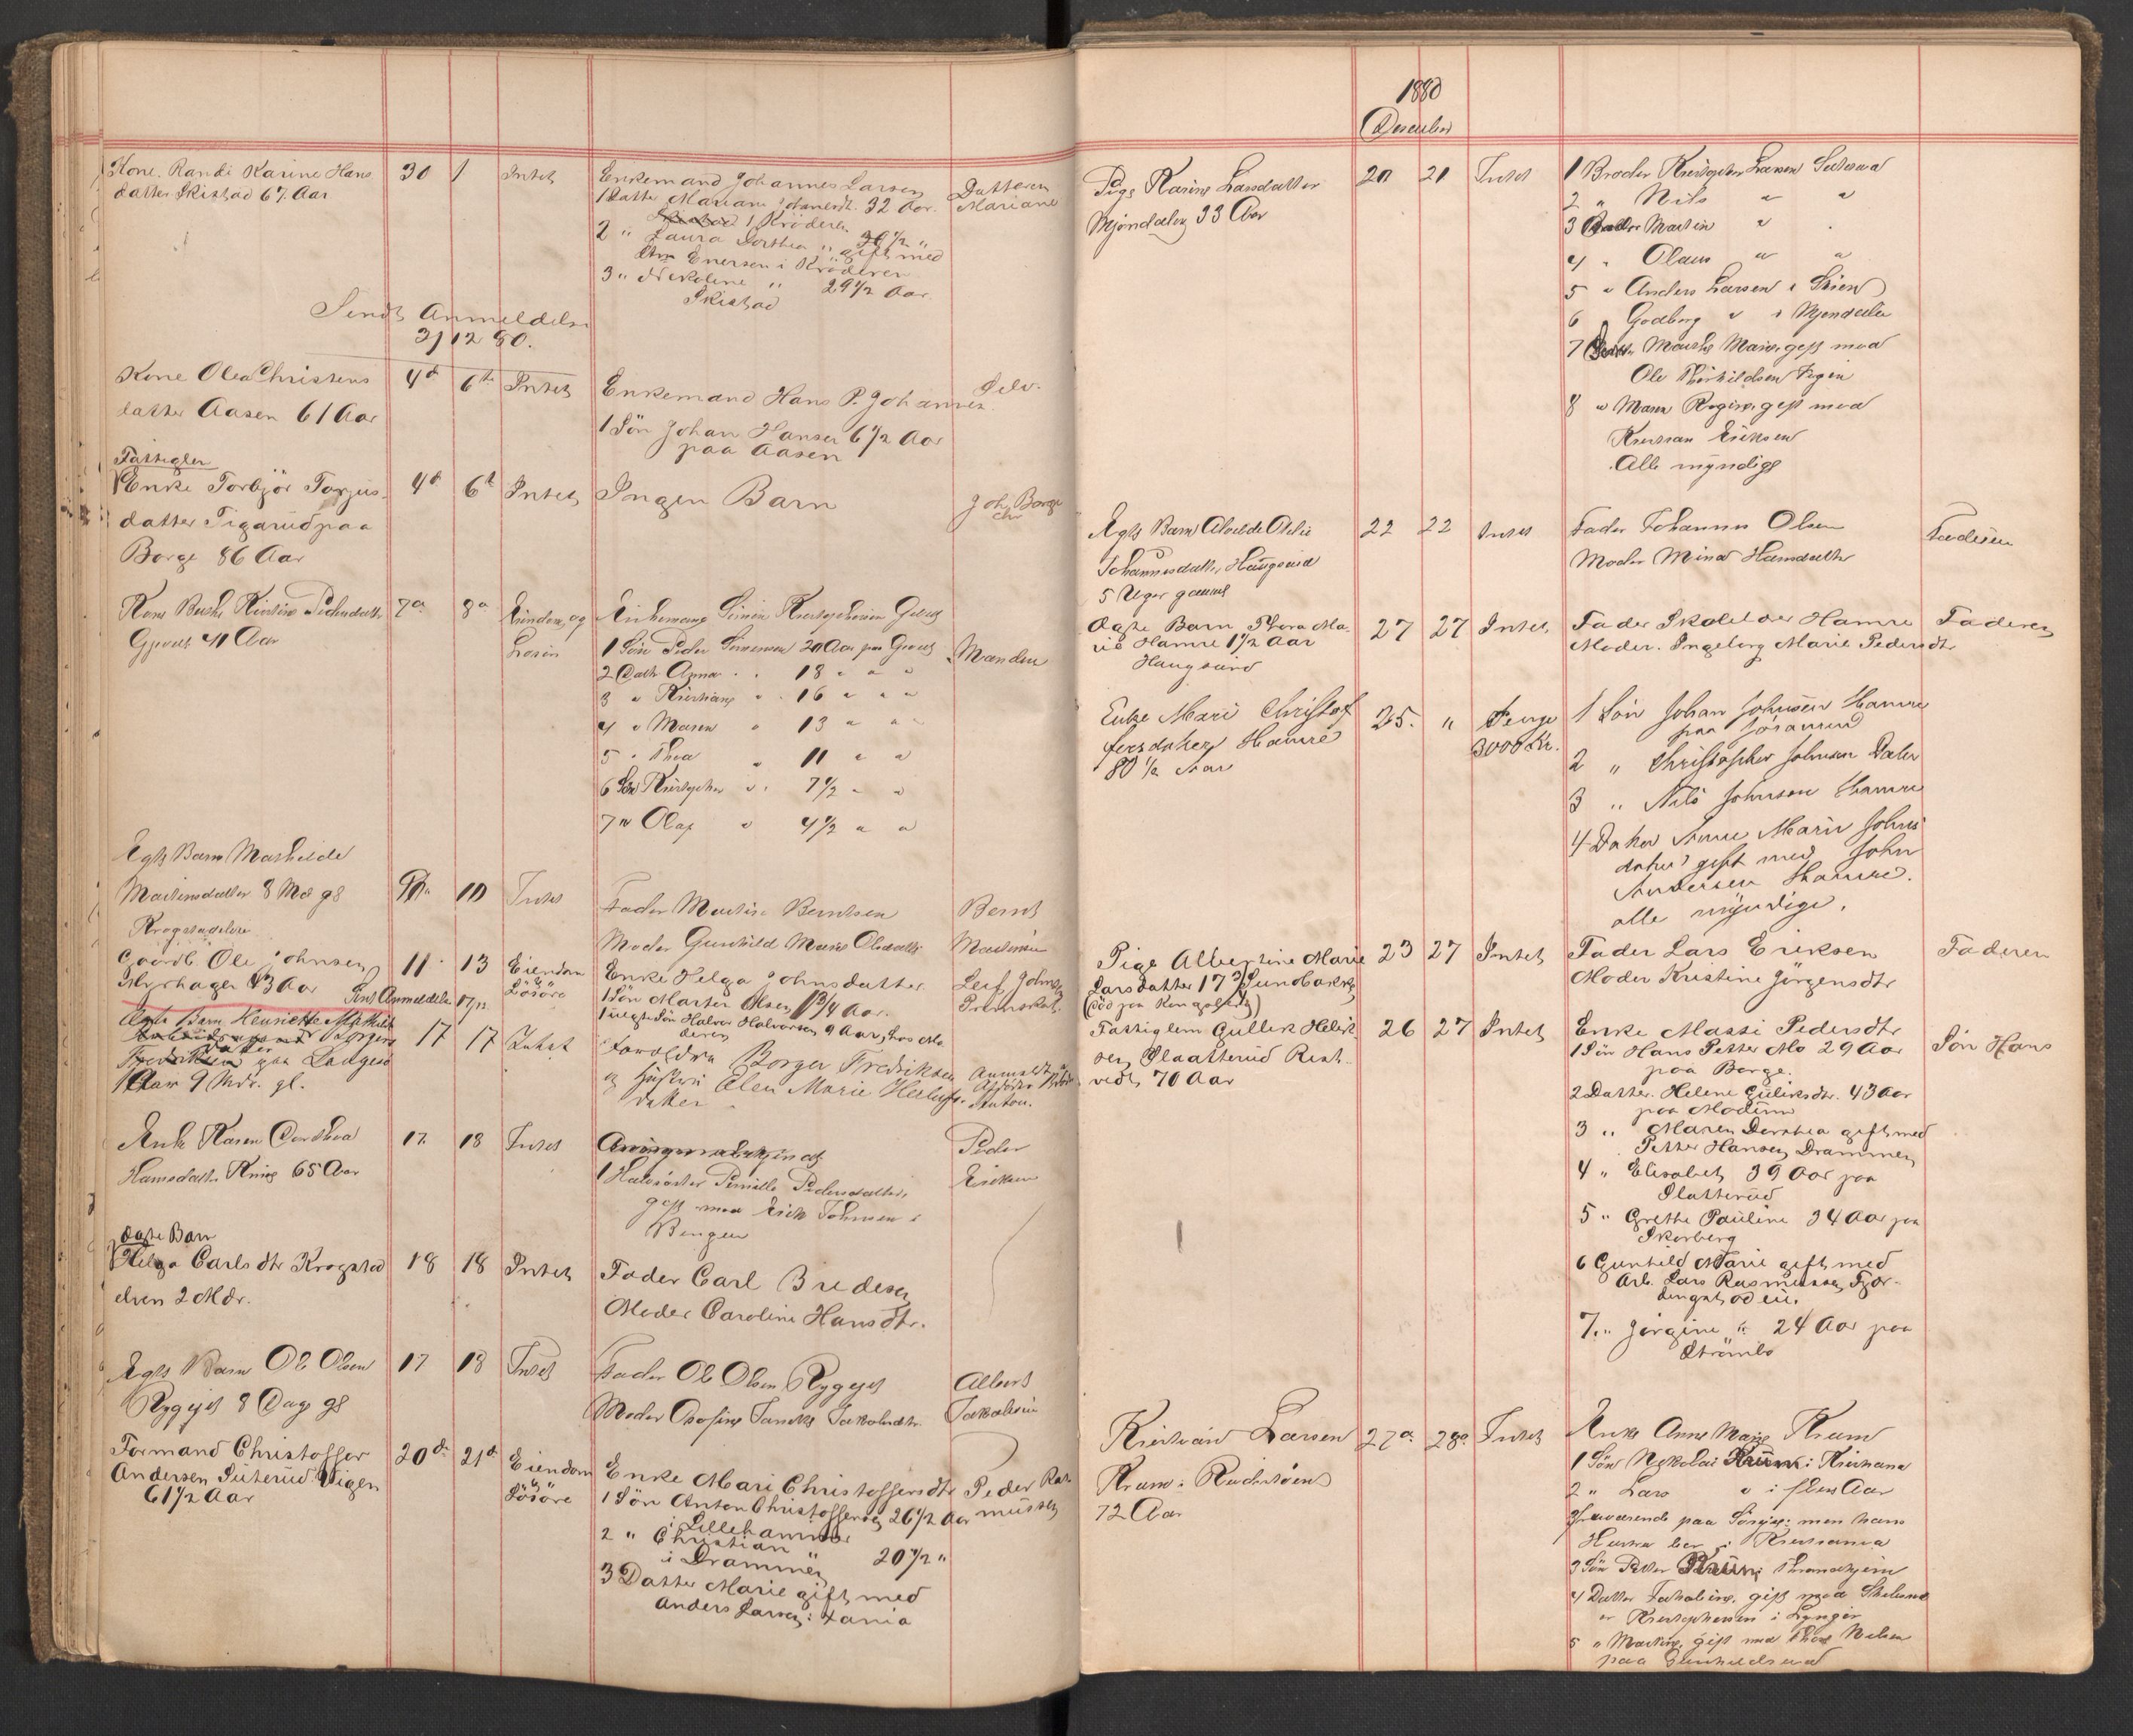 Kone. Randi Karine Hans
datter Skistad 67 Aar
30
1
Intet
Enkemand Johannes Larsen
1 Datter Mariane Johannesdt. 32 Aar.
Skistad / Kröderen
2 " Laura Dorthea " 30 1/2 "
gift med
Enersen i Kröderen
3 " Nikoline " 29 1/2 Aar.
Skistad
Datteren
Mariane
Sendt Anmeldelse
3/12 80.
Kone Olea Christens
datter Aasen 61 Aar
4d
6te
Intet
Enkemand Hans P. Johannes
1 Sön Johan Hansen 6 1/2 Aar
paa Aasen
Selv.
Fattiglem
Enke Torbjör Torjus
datter Tigarud paa
Borge 86 Aar
4d
6t
Intet
Ingen Barn
Joh. Borge
Kone Berthe Kirstine Pedersdatter
41 Aar
7a
8a
Eiendom og
Lösöre
Enkemand Simen Kristophersen
1 Sön Peder Simensen 20 Aar paa
2 Datter Anna " 18 " "
3 " Kristiane " 16 " " "
4 " Maren " 13 " "
5 " Thea " 11 " "
6 Sön Kristopher " 7 1/2 " "
7 " Olaf " 4 1/2 " "
Manden
Egte Barn Mathilde
Martinsdatter 8 Md gl
Krogstadelven
10
Intet
Fader Martin Berntsen
Moder Gunhild Marie Olsdatter
Bernt
Martinsen
Gaardb. Ole Johnsen
Myrhagen 43 Aar
Sent Anmeldelse 17/12
11
13
Eiendom
Lösöre
Enke Helga Johnsdatter
1 Sön Marten Olsen 1 3/4 Aar.
1 uegte Sön Halvor Halvorsen 9 Aar, hos Mo
deren
Leif Johnsen
Egte Barn Henriette Mathilde
Borgers
datter
Fredriksen paa Langesö
1 Aar 9 Mdr. gl.
17
17
Intet
Foreldre Borger Fredriksen
og Hustru Elen Marie Herlufs-
datter
Anmeldt
Anton.
Enke Karen Dorthea
Hansdatter 65 Aar
17
18
Intet
1 Halvsöster Pernille Pedersdatter,
gift med Erik Johnsen i
Bingen
Peder
Eriksen
Egte Barn
Helga Carlsdtr Krogstad
elven 2 Mdr.
18
18
Intet
Fader Carl Bredesen
Moder Caroline Hansdtr.
Egte Barn Ole Olsen
8 Dage gl
17
18
Intet
Fader Ole Olsen
Moder Josefine Jakobsdtr.
Albert
Jakobsen
Formand Christoffer
Andersen Süterüd Vigen
61 1/2 Aar
20d
21d
Eiendom
Lösöre
Enke Mari Christoffersdtr
1 Sön Anton Christoffersen 26 1/2 Aar
i Lillehammer
2 " Christian " 20 1/2 "
i Drammen
3 Datter Marie gift med
Anders Larsen i Xania
Peder Ras
mussen
1880
December
Pige Karine Larsdatter
Mjöndalen 33 Aar
20
21
Intet
1 Broder Kristopher Larsen
2 " Nils " "
3 Broder Martin "
4 " Olaus " "
5 " Anders Larsen i Skien
6 Godberg " i Mjöndalen
7 Marthe Marie gift med
Ole
8 " Maren Regine gift med
Kristian Eriksen
Alle myndige
Egte Barn Alvilde Otilie
Johannesdatter Haugsund
5 Uger gammel
22
22
Intet
Fader Johannes Olsen
Moder Mina Hansdatter
Faderen
Egte Barn Thora Ma-
rie Hamre 1 1/2 Aar
Haugsund
27
27
Intet
Fader Skolelærer Hamre
Moder. Ingeborg Marie Pedersdtr
Faderen
Enke Mari Christof
fersdatter Hamre
80 1/2 Aar
25.
"
Penge
3000 Kr.
1 Sön Johan Johnsen Hamre
paa
2 " Christopher Johnsen Dalen
3 " Nils Johnsen Hamre
4 Datter Anne Marie Johns
datter gift med John
Andersen Hamre.
alle myndige.
Pige Albertine Marie
Larsdatter 17 3/4
(död paa Kongsberg)
23
27
Intet
Fader Lars Eriksen
Moder Kristine Jörgensdtr
Faderen
Fattiglem Gullik Helik
sen Slaatterud
70 Aar
26
27
Intet
Enke Massi Pedersdtr
1 Sön Hans Petter Mo 29 Aar
paa Borge.
2 Datter. Helene Guliksdtr. 43 Aar
paa Modum
3 " Maren Dorthea gift med
Petter Hansen Drammen
4 " Elisabet 39 Aar paa
Slatterud
5 " Grethe Pauline 34 Aar paa
Skorberg
6 Gunhild Marie gift med
Arb. Lars Rasmussen Fjor-
7. " Jörgine " 24 Aar paa
Strömbo
Sön Hans
Kristian Larsen
Krum i
72 Aar
27a
28a
Intet
Enke Anne Marie Krum
1 Sön Nikolai Krum i Kristiania
2 " Lars " i flere Aar
fraværende paa Söreise men hans
Hustru bor i Kristiania
3 Sön Petter Krum i Throndhjem
4 Datter Jakobine, gift med
Kristophersen i Lyngör
5 " Martine, gift med Thor Nilsen
paa Gunhildsrud